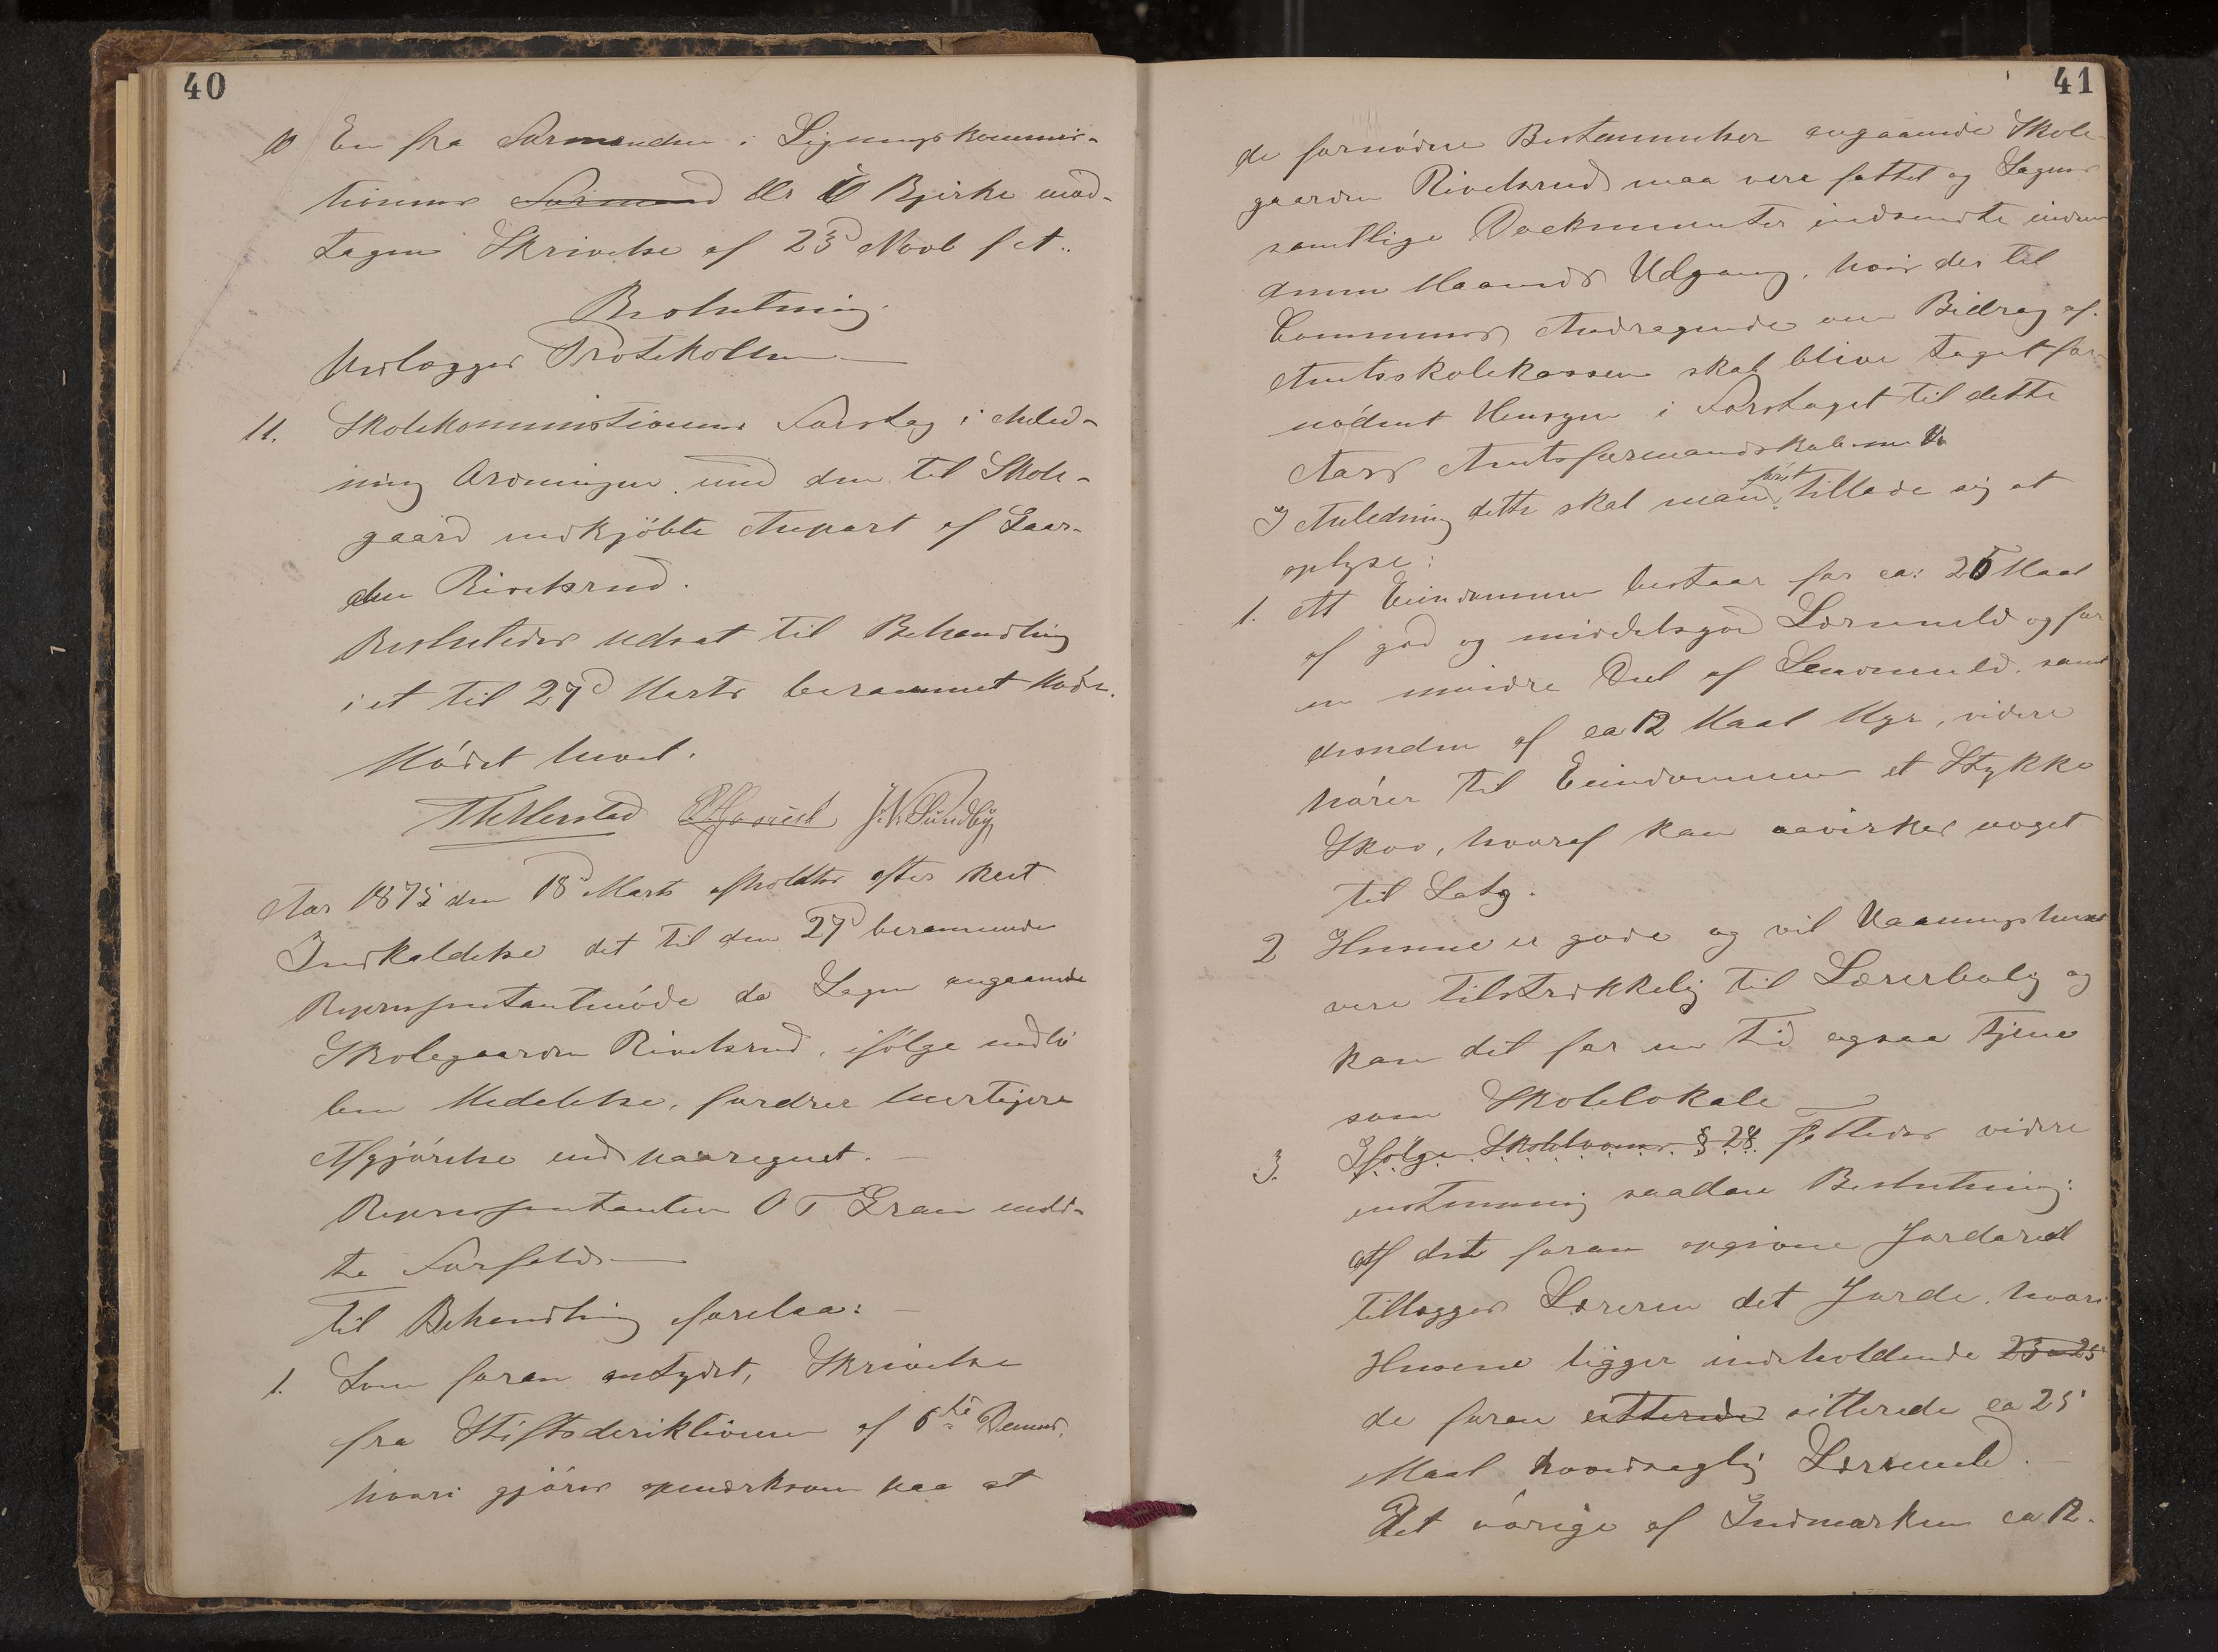 40
10 En fra Formanden i Ligningskommis-
tionen Formand Hr O Bjerke mod-
tagen Skrivelse af 23d Novb f A.
Beslutning.
Vedlægges Protokollen
11. Skolekommistionens Forslag i Anled-
ning Ordningen med den til Skole-
gaard indkjöbte Anpart af Gaar-
den Rivelsrud.
Besluttedes udsat til Behandling
i et til 27d Marts berammet Möde.
Mödet hævet.
J. N. Sundby
Aar 1875 den 18d Marts afholdtes efter skeet
Indkaldelse det til den 27d berammede
Representantmöde da Sagen angaaende
Skolegaarden Rivelsrud, ifölge indlö
ben Meddelelse, fordrer hurtigere
Afgjörelse end paaregnet. —
Representanten O T Gran meld-
te Forfald —
Til Behandling forelaa: —
1. Som foran antydet, Skrivelse
fra Stiftsdirektionen af 6te Dennes,
hvori gjöres opmærksom paa at
41
de fornödne Bestemmelser angaaende Skole-
gaarden Rivelsrud maa være fattet og Sagens
samtlige Dockumenter indsendte inden
denne Maaneds Udgang, hvis der til
Communens Andragende om Bidrag af
Amtsskolekassen skal blive taget for-
nödent Hensyn i Forslaget til dette
Aars Amtsformandskab
I Anledning dette skal man först tillade sig at
oplyse:
1. At Eiendommen bestaar for ca: 26 Maal
af god og middelsgod Lermuld og for
en mindre Deel af Sandmuld, samt
desuden af ca 12 Maal Myr, videre
hörer til Eiendommen et Stykke
Skov, hvoraf kan aavirkes noget
til Salg.
2 Husene er gode og vil Vaaningshuset
være tilstrækkelig til Lærerbolig og
kan det for en Tid ogsaa tjene
som Skolelokale —
3. Ifölge Skolelovens § 28 fattedes videre
enstemmig saadan Beslutning:
Af det foran opgivne Jordareal
tillægges Læreren det Jorde, hvori
Husene ligger indeholdende 23 a 25
de foran citterede citterede ca 25
Maal hovedsaglig Lermuld. —
Det övrige af Indmarken ca 12.